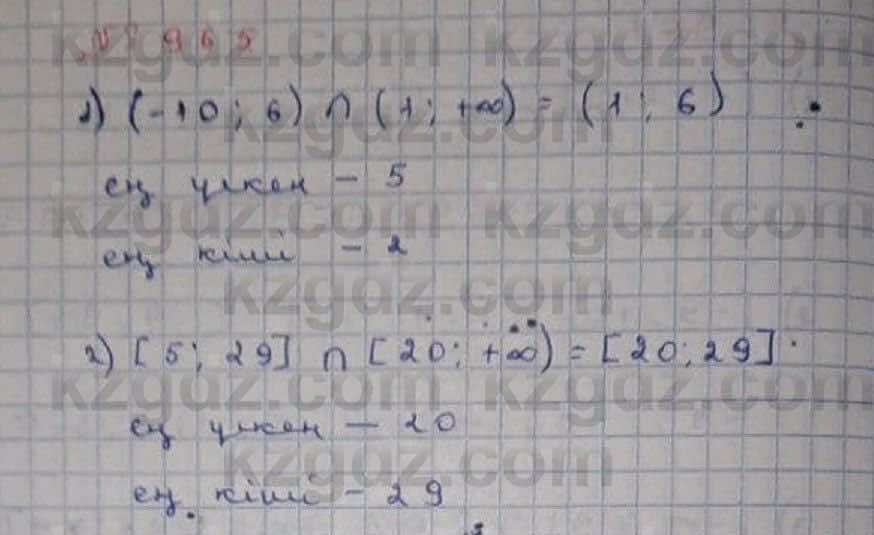 № 965
1) (-10; 6) ∩ (1; +∞) = (1; 6)
ең үлкен - 5
ең кіші - 2
2) [5; 29] ∩ [20; +∞) = [20; 29]
ең үлкен - 20
ең кіші - 29
kzgdz.com kzgdz.com
kzgdz.com
kzgdz.com kzgdz.com
kzgdz.com
kzgdz.com kzgdz.com
kzgdz.com